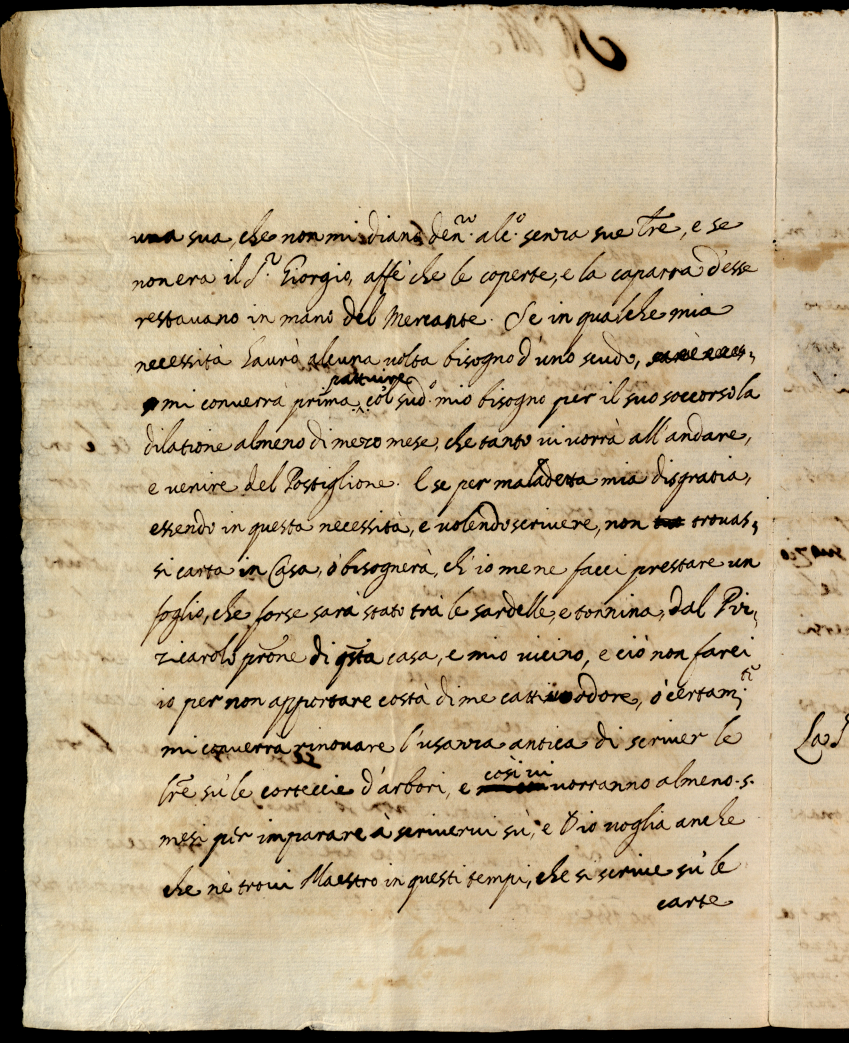 una sua, che non mi diano den.ro alc.o senza sue Lre, e se
non era il S.r Giorgio, affè che le coperte, e la caparra d'esse
restavano in mano del Mercante. Se in qualche mia
necessità haurò alcuna volta bisogno d'uno scudo,
mi converrà prima pattuire col sud.o mio bisogno per il suo soccorso la
dilatione almeno di mezo mese, che tanto vi vorrà all'andare,
e venire del Postiglione. E se per maladetta mia disgratia,
essendo in questa necessità, e volendo scrivere, non trovas,
si carta in Casa, ò bisognerà, ch'io me ne facci prestare un
foglio, che forse sarà stato trà le sardelle, e tonnina, dal Piz,
zicarolo prone di qsta casa, e mio vicino, e ciò non farei
io per non apportare costà di me cattivo odore, ò certam.te
mi converrà rinovare l'usanza antica di scriver le
lre sù le corteccie d'arbori, e così vi vorranno almeno .s.
mesi per imparare à scrivervi sù, e Dio voglia anche
che ne trovi Maestro in questi tempi, che si scrive sù le
carte